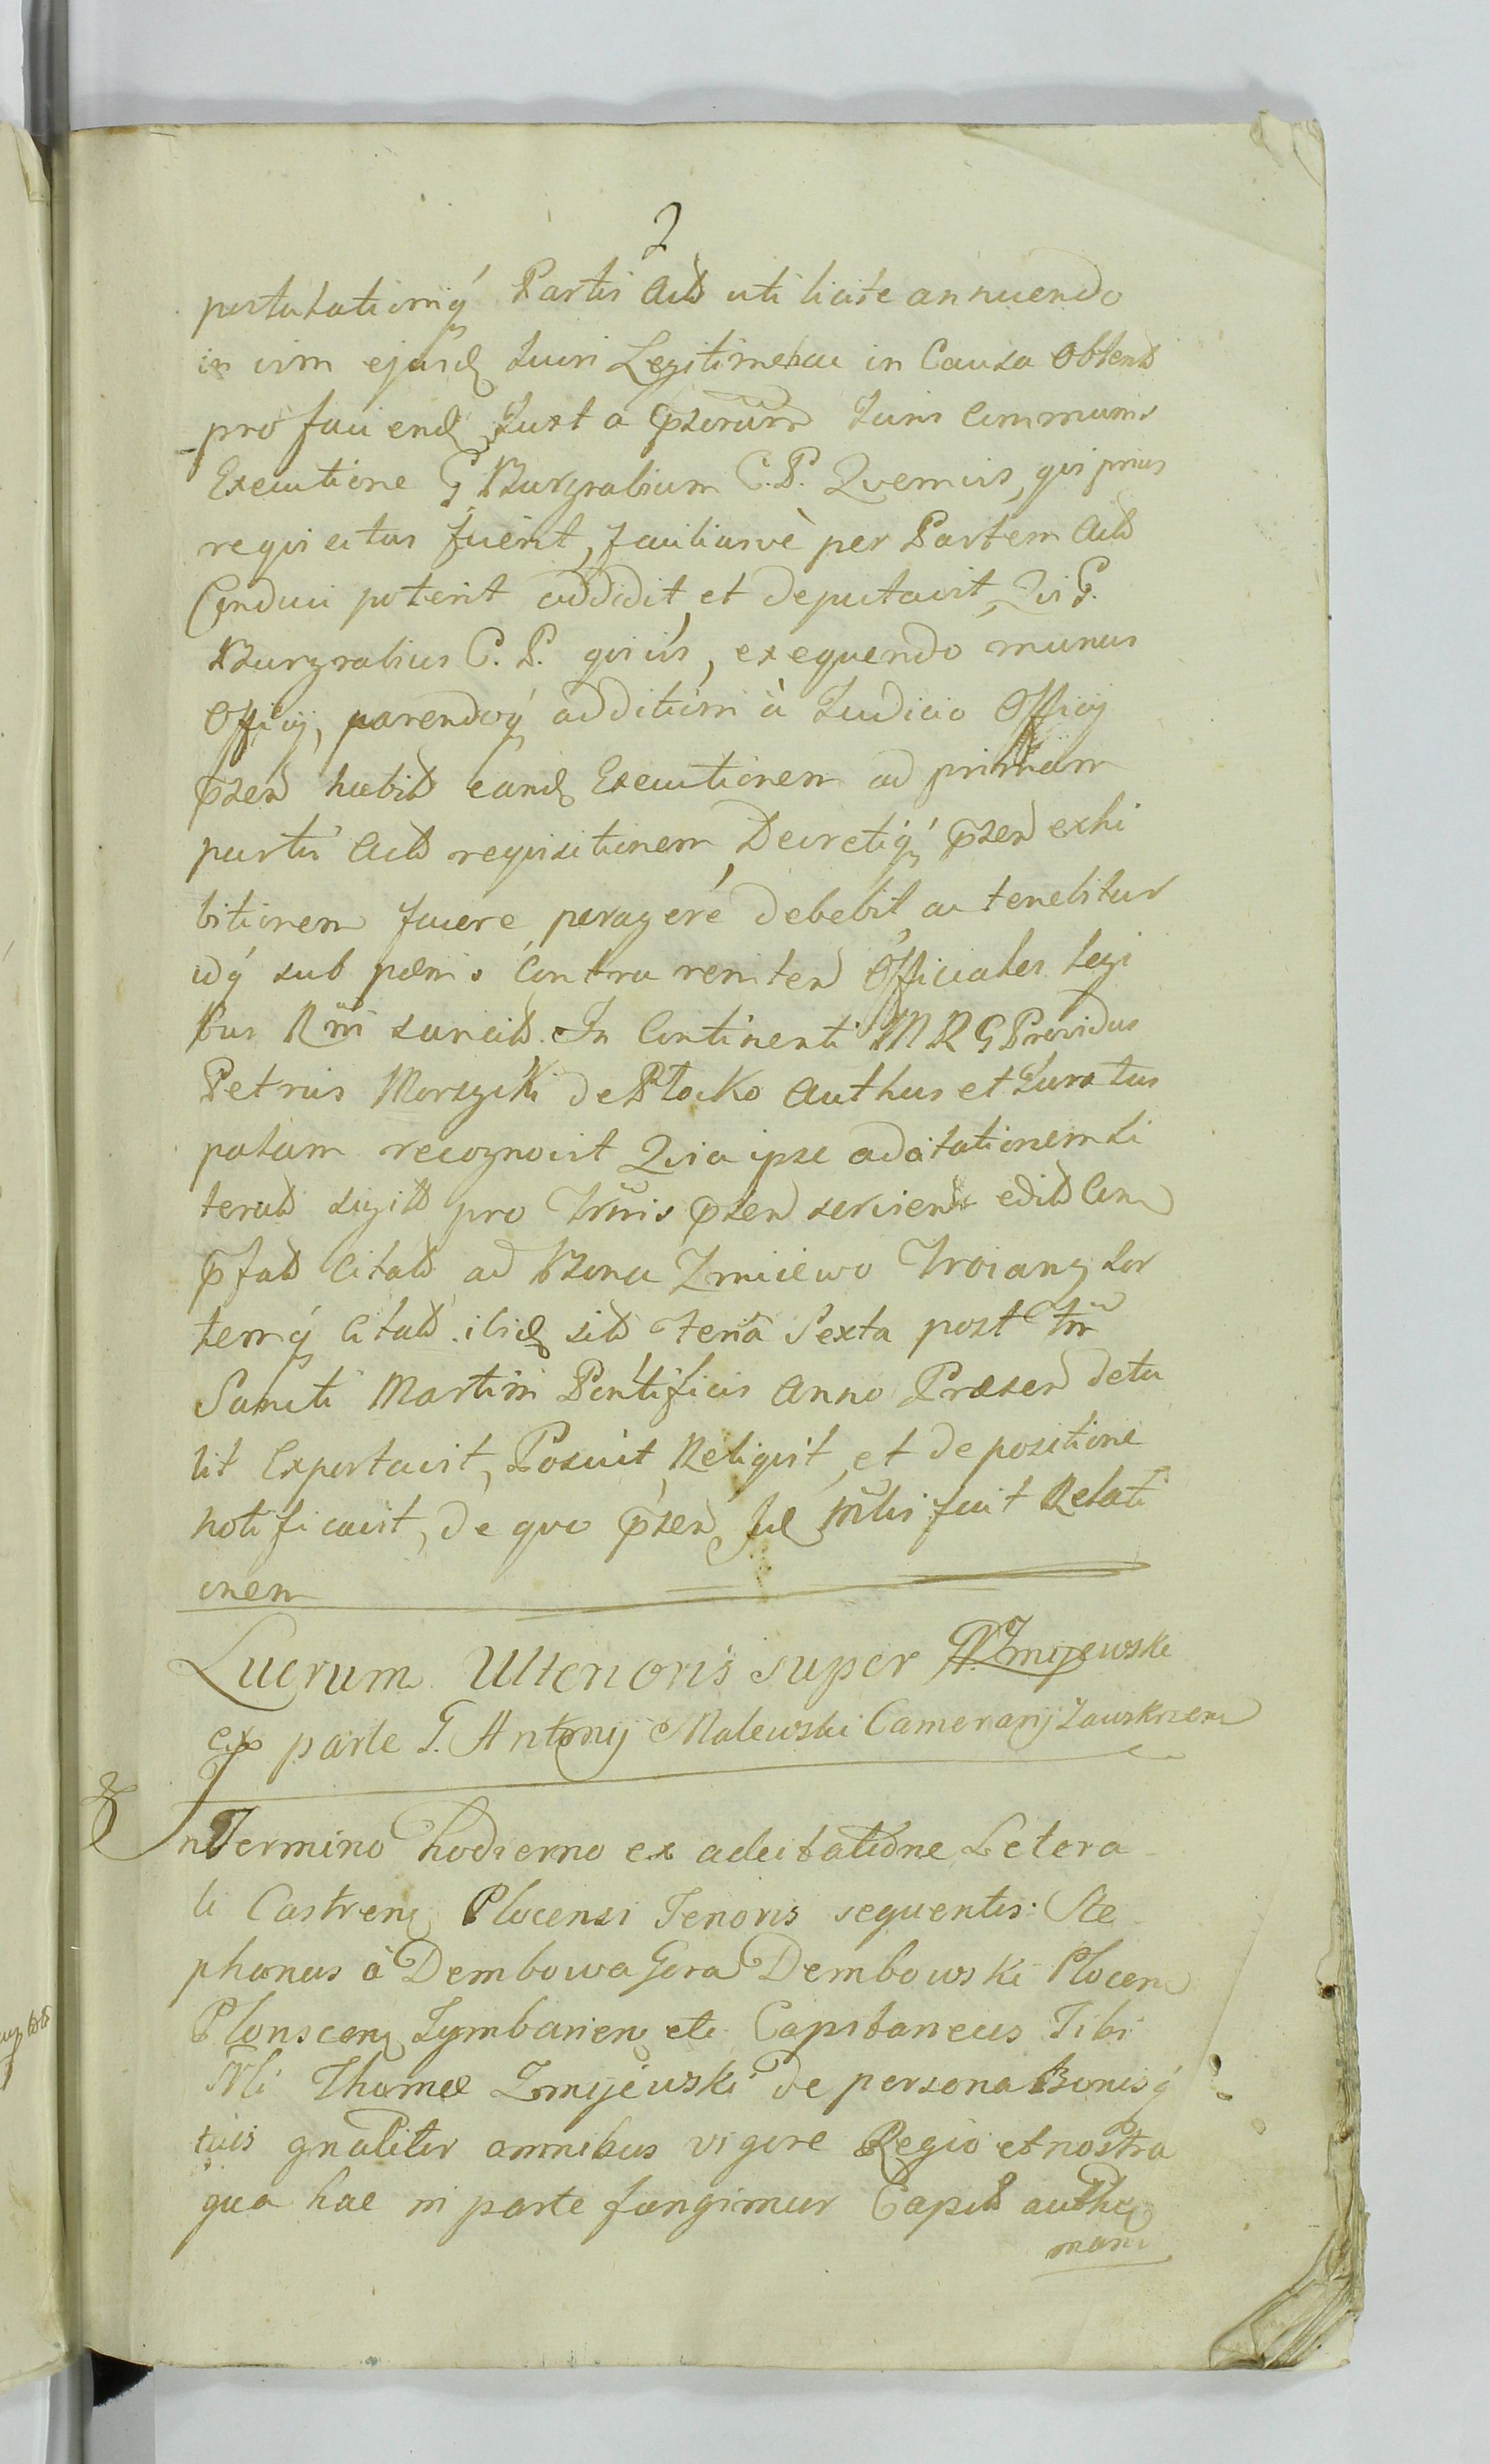 2
postulationiq Partis Actt uti licite annuendo
in vim ejusd Juri Legitime hac in Causa Obtent
pro faciend Juxta psorum Juris Communis
Executione G Burgrabium C. P. Quemvis, qui prius
requisitus fuerit, faciliusve per Partem Actt
Conduci poterit addidit, et deputavit, Qui G.
Burgrabius C. P. quivis, exequendo munus
Officij, parendoq additioni à Judicio Officij
pzen habitt eand Executionem ad primam
partis Actt requisitionem Decretiq pzen exhi
bitionem facere peragere debebit, ac tenebitur
idq sub pænis Contra reniten Officiales legi
bus Rni sancitt. In Continenti M R G Providus
Petrus Morzycki de Plocko Authus et Juratus
palam recognovit Quia ipse adcitationem Li
teratt sigill pro Trnis pzen servien editt Cum
pfatt Citatt ad Bona Zmiiewo Troiany Sor
temq Citatt ibid sitt Feria Sexta post Fm
Sancti Martini Pontificis Anno Præsen detu
lit Exportavit, Posuit, Reliquit, et de positione
notificavit, de quo pzen fac Mlis fecit Relati
onem
Lucrum Ulterioris super M. Zmijewski
ex parte G. Antonij Malewski Camerarij Zawskrzen
In Termino hodierno ex adcitatione Letera
li Castren Plocensi Tenoris sequentis: Ste
phanus à Dembowagora Dembowski Plocen
Plonscen Tymbarien etc Capitaneus Tibi
Mli Thomæ Zmijewski de persona Bonisq
tuis gnaliter omnibus vigore Regio et nostra
qua hac in parte fungimur Capitt authe
mani